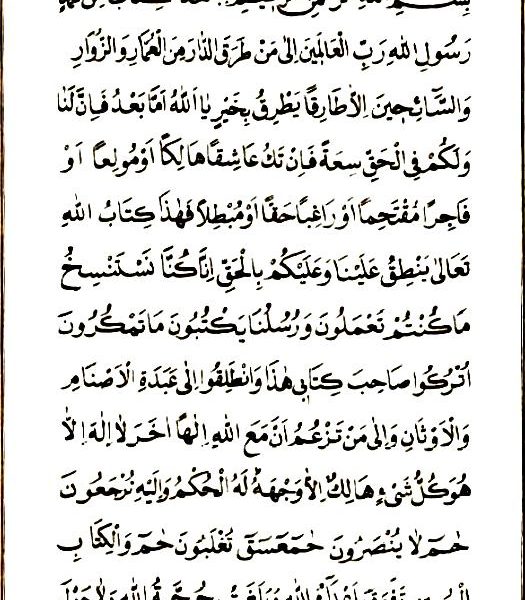 بِسْمِ اللهِ الرَّحْمٰنِ الرَّحِيْمِ هٰذَا كِتَابٌ مِنْ مُحَمَّدٍ
رَسُولِ اللهِ رَبِّ الْعَالَمِيْنَ اِلٰى مَنْ طَرَقَ الدَّارَ مِنَ الْعُمَّارِ وَالزُّوَّارِ
وَالسَّآئِحِيْنَ اِلَّاطَارِقًا يَطْرِقُ بِخَيْرٍ يَا اَللهُ اَمَّا بَعْدُ فَاِنَّ لَنَا
وَلَكُمْ فِى الْحَقِّ سِعَةً فَاِنْ تَكُ عَاشِقًا هَالِكًا اَوْ مُولِعًا اَوْ
فَاجِرًا مُقْتَحِمًا اَوْ رَاغِبًا حَقًّا اَوْ مُبْطِلًا فَهٰذَا كِتَابُ اللهِ
تَعَالٰى يَنْطِقُ عَلَيْنَا وَعَلَيْكُمْ بِالْحَقِّ اِنَّا كُنَّا نَسْتَنْسِخُ
مَا كُنْتُمْ تَعْمَلُونَ وَرُسُلُنَا يَكْتُبُونَ مَا تَمْكُرُونَ
اُتْرُكُوا صَاحِبَ كِتَابِى هٰذَا وَانْطَلِقُوا اِلٰى عَبَدَةِ الْاَصْنَامِ
وَالْاَوْثَانِ وَاِلٰى مَنْ تَزْعُمُ اَنَّ مَعَ اللهِ اِلٰهًا اٰخَرَ لَا اِلٰهَ اِلَّا
هُوَ كُلُّ شَىْءٍ هَالِكٌ اِلَّا وَجْهَهٗ لَهُ الْحُكْمُ وَاِلَيْهِ تُرْجَعُونَ
حٰمٓ لَا يُنْصَرُونَ حٰمٓعٓسٓقٓ تُغْلَبُونَ حٰمٓ وَالْكِتَابِ